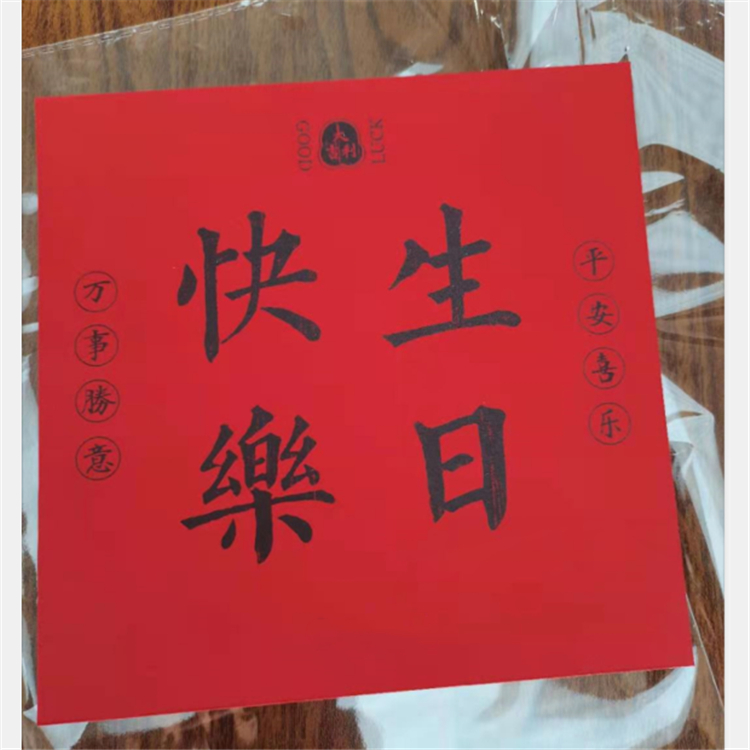 GOOD LUCK
平安喜乐
生日
快樂
万事勝意